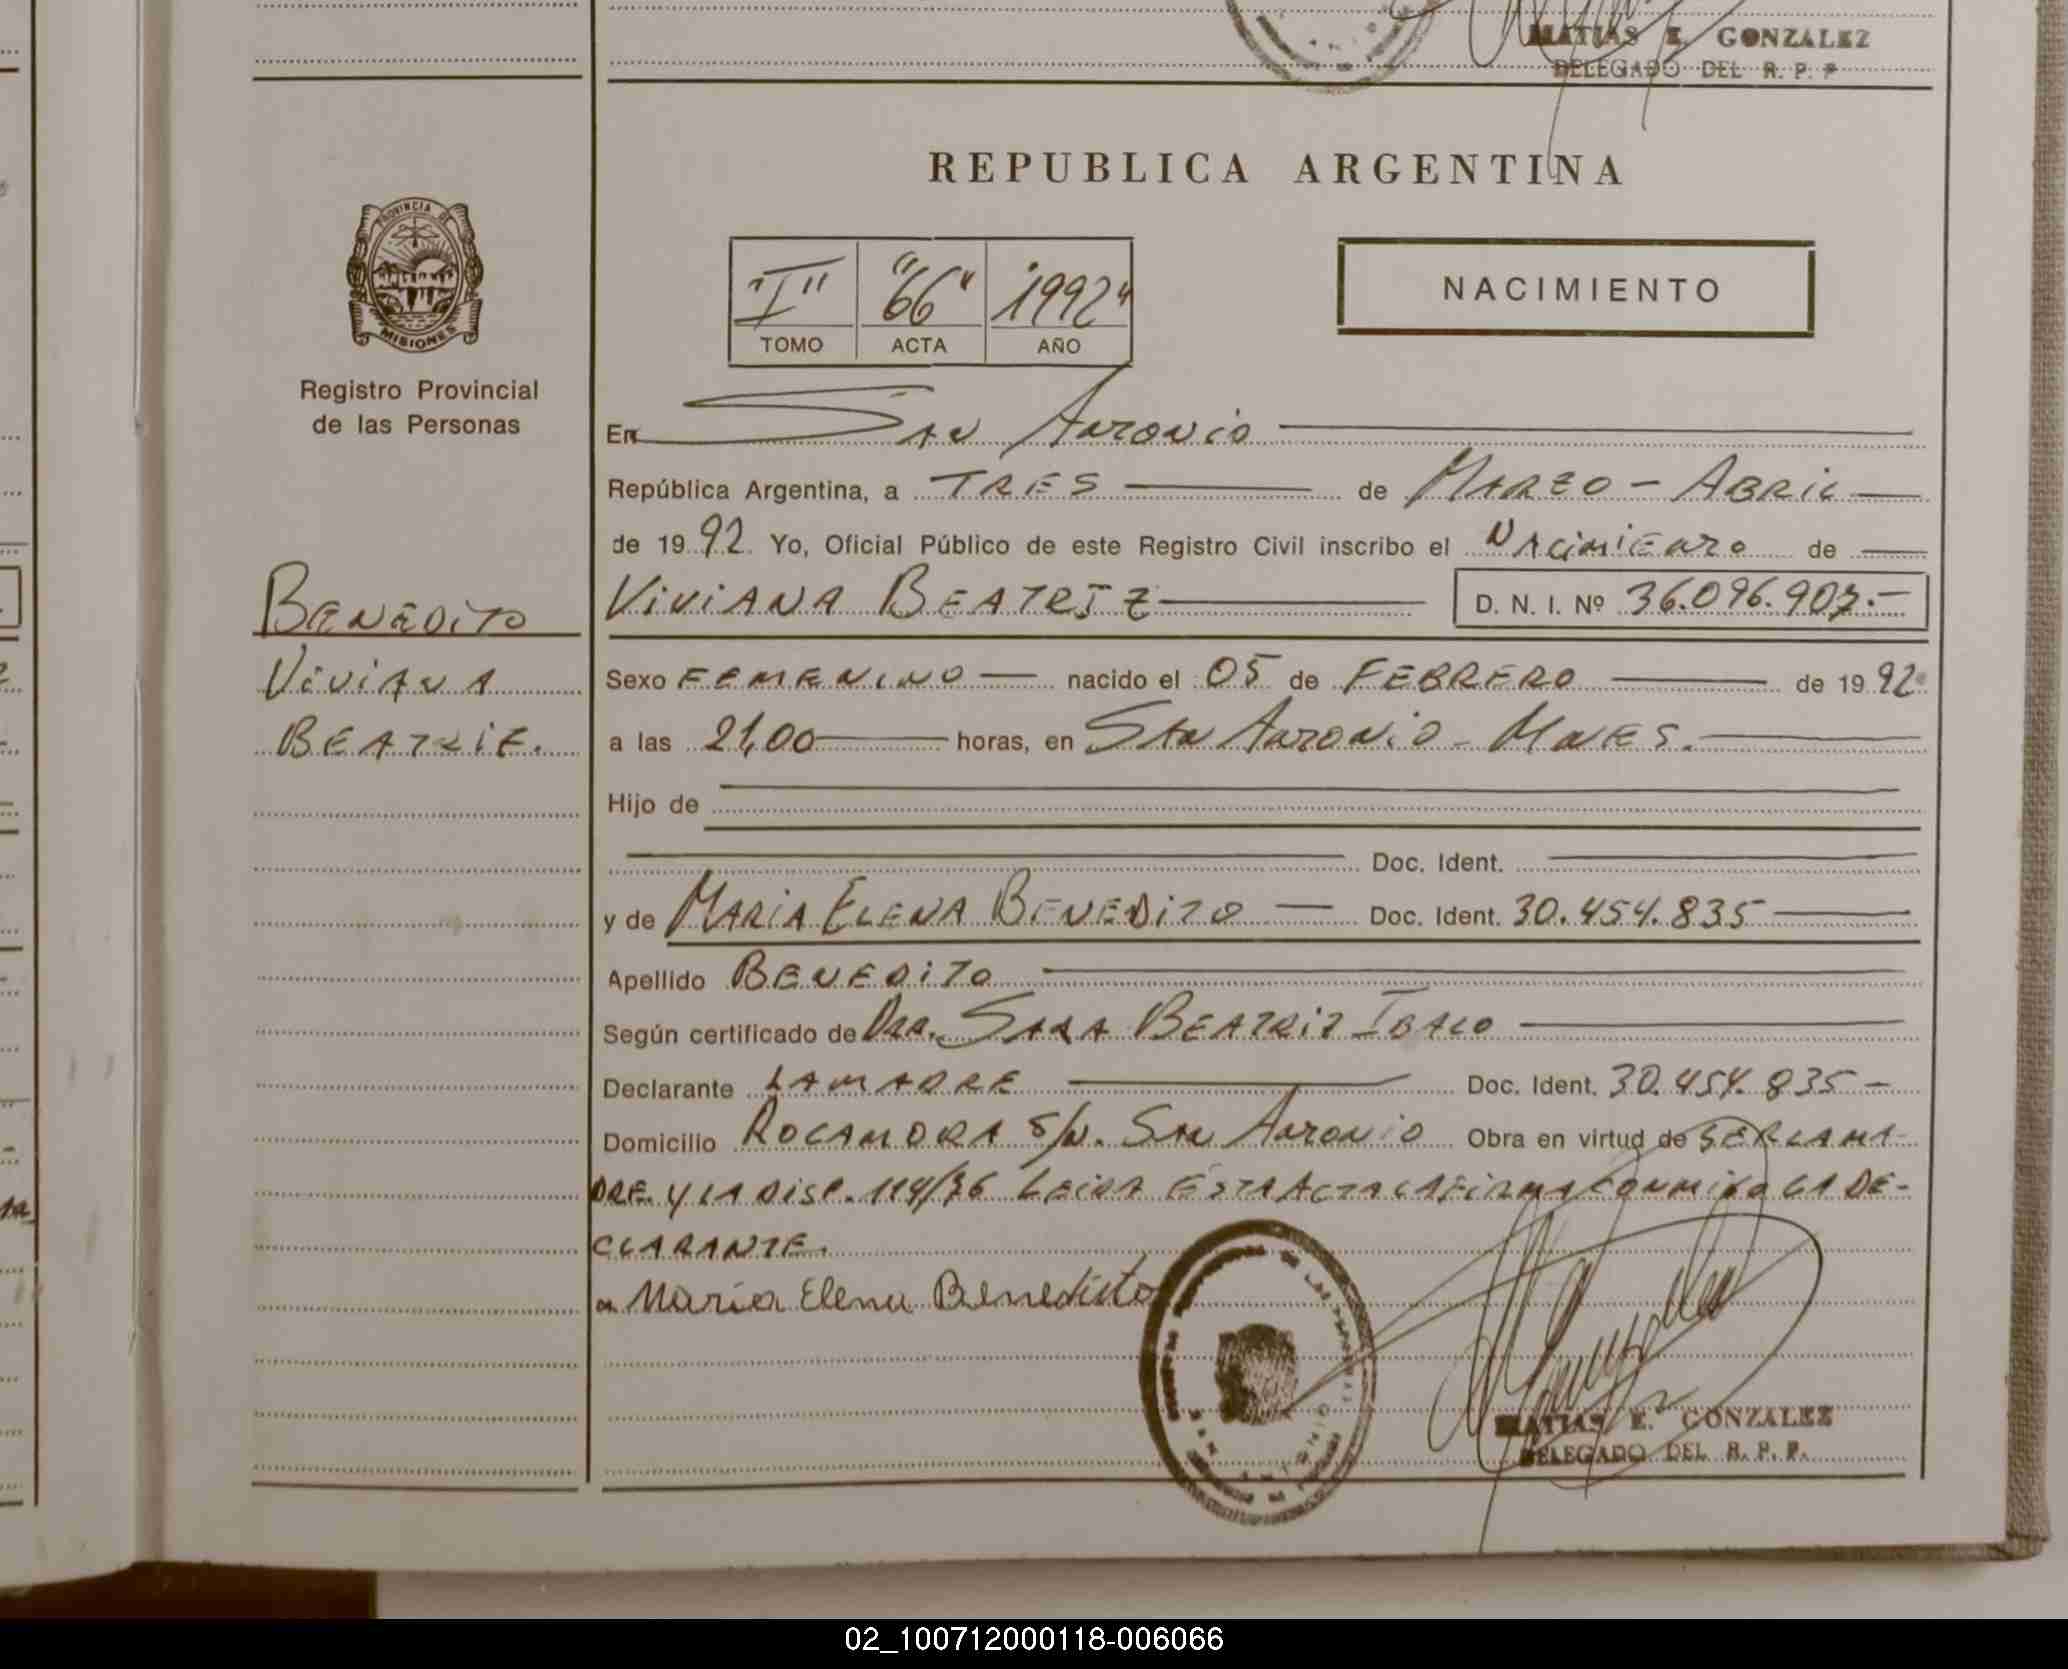 MATIAS E. GONZALEZ
DELEGADO DEL R. P. P
REPUBLICA ARGENTINA
PROVINCIA DE
MISIONES
Registro Provincial
de las Personas
"I" "66" 1992"
TOMO ACTA AÑO
NACIMIENTO
En San Antonio
República Argentina, a TRES de Marzo - Abril
de 1992 Yo, Oficial Público de este Registro Civil inscribo el Nacimiento de
BENEDITO
VIVIANA
BEATRIZ.
VIVIANA BEATRIZ D. N. I. Nº 36.096.907.-
Sexo FEMENINO nacido el 05 de FEBRERO de 1992
a las 21,00 horas, en San Antonio - Mnes.
Hijo de
Doc. Ident.
y de MARIA ELENA BENEDITO Doc. Ident. 30.454.835
Apellido BENEDITO
Según certificado de Dra. SARA BEATRIZ IBALO
Declarante LA MADRE Doc. Ident. 30.454.835 -
Domicilio ROCAMORA S/N. San Antonio Obra en virtud de SER LA MA-
DRE Y LA DISP. 114/76 LEIDA ESTA ACTA LA FIRMA CONMIGO LA DE-
CLARANTE.
Maria Elena Benedito
MATIAS E. GONZALEZ
DELEGADO DEL R. P. P.
02_100712000118-006066